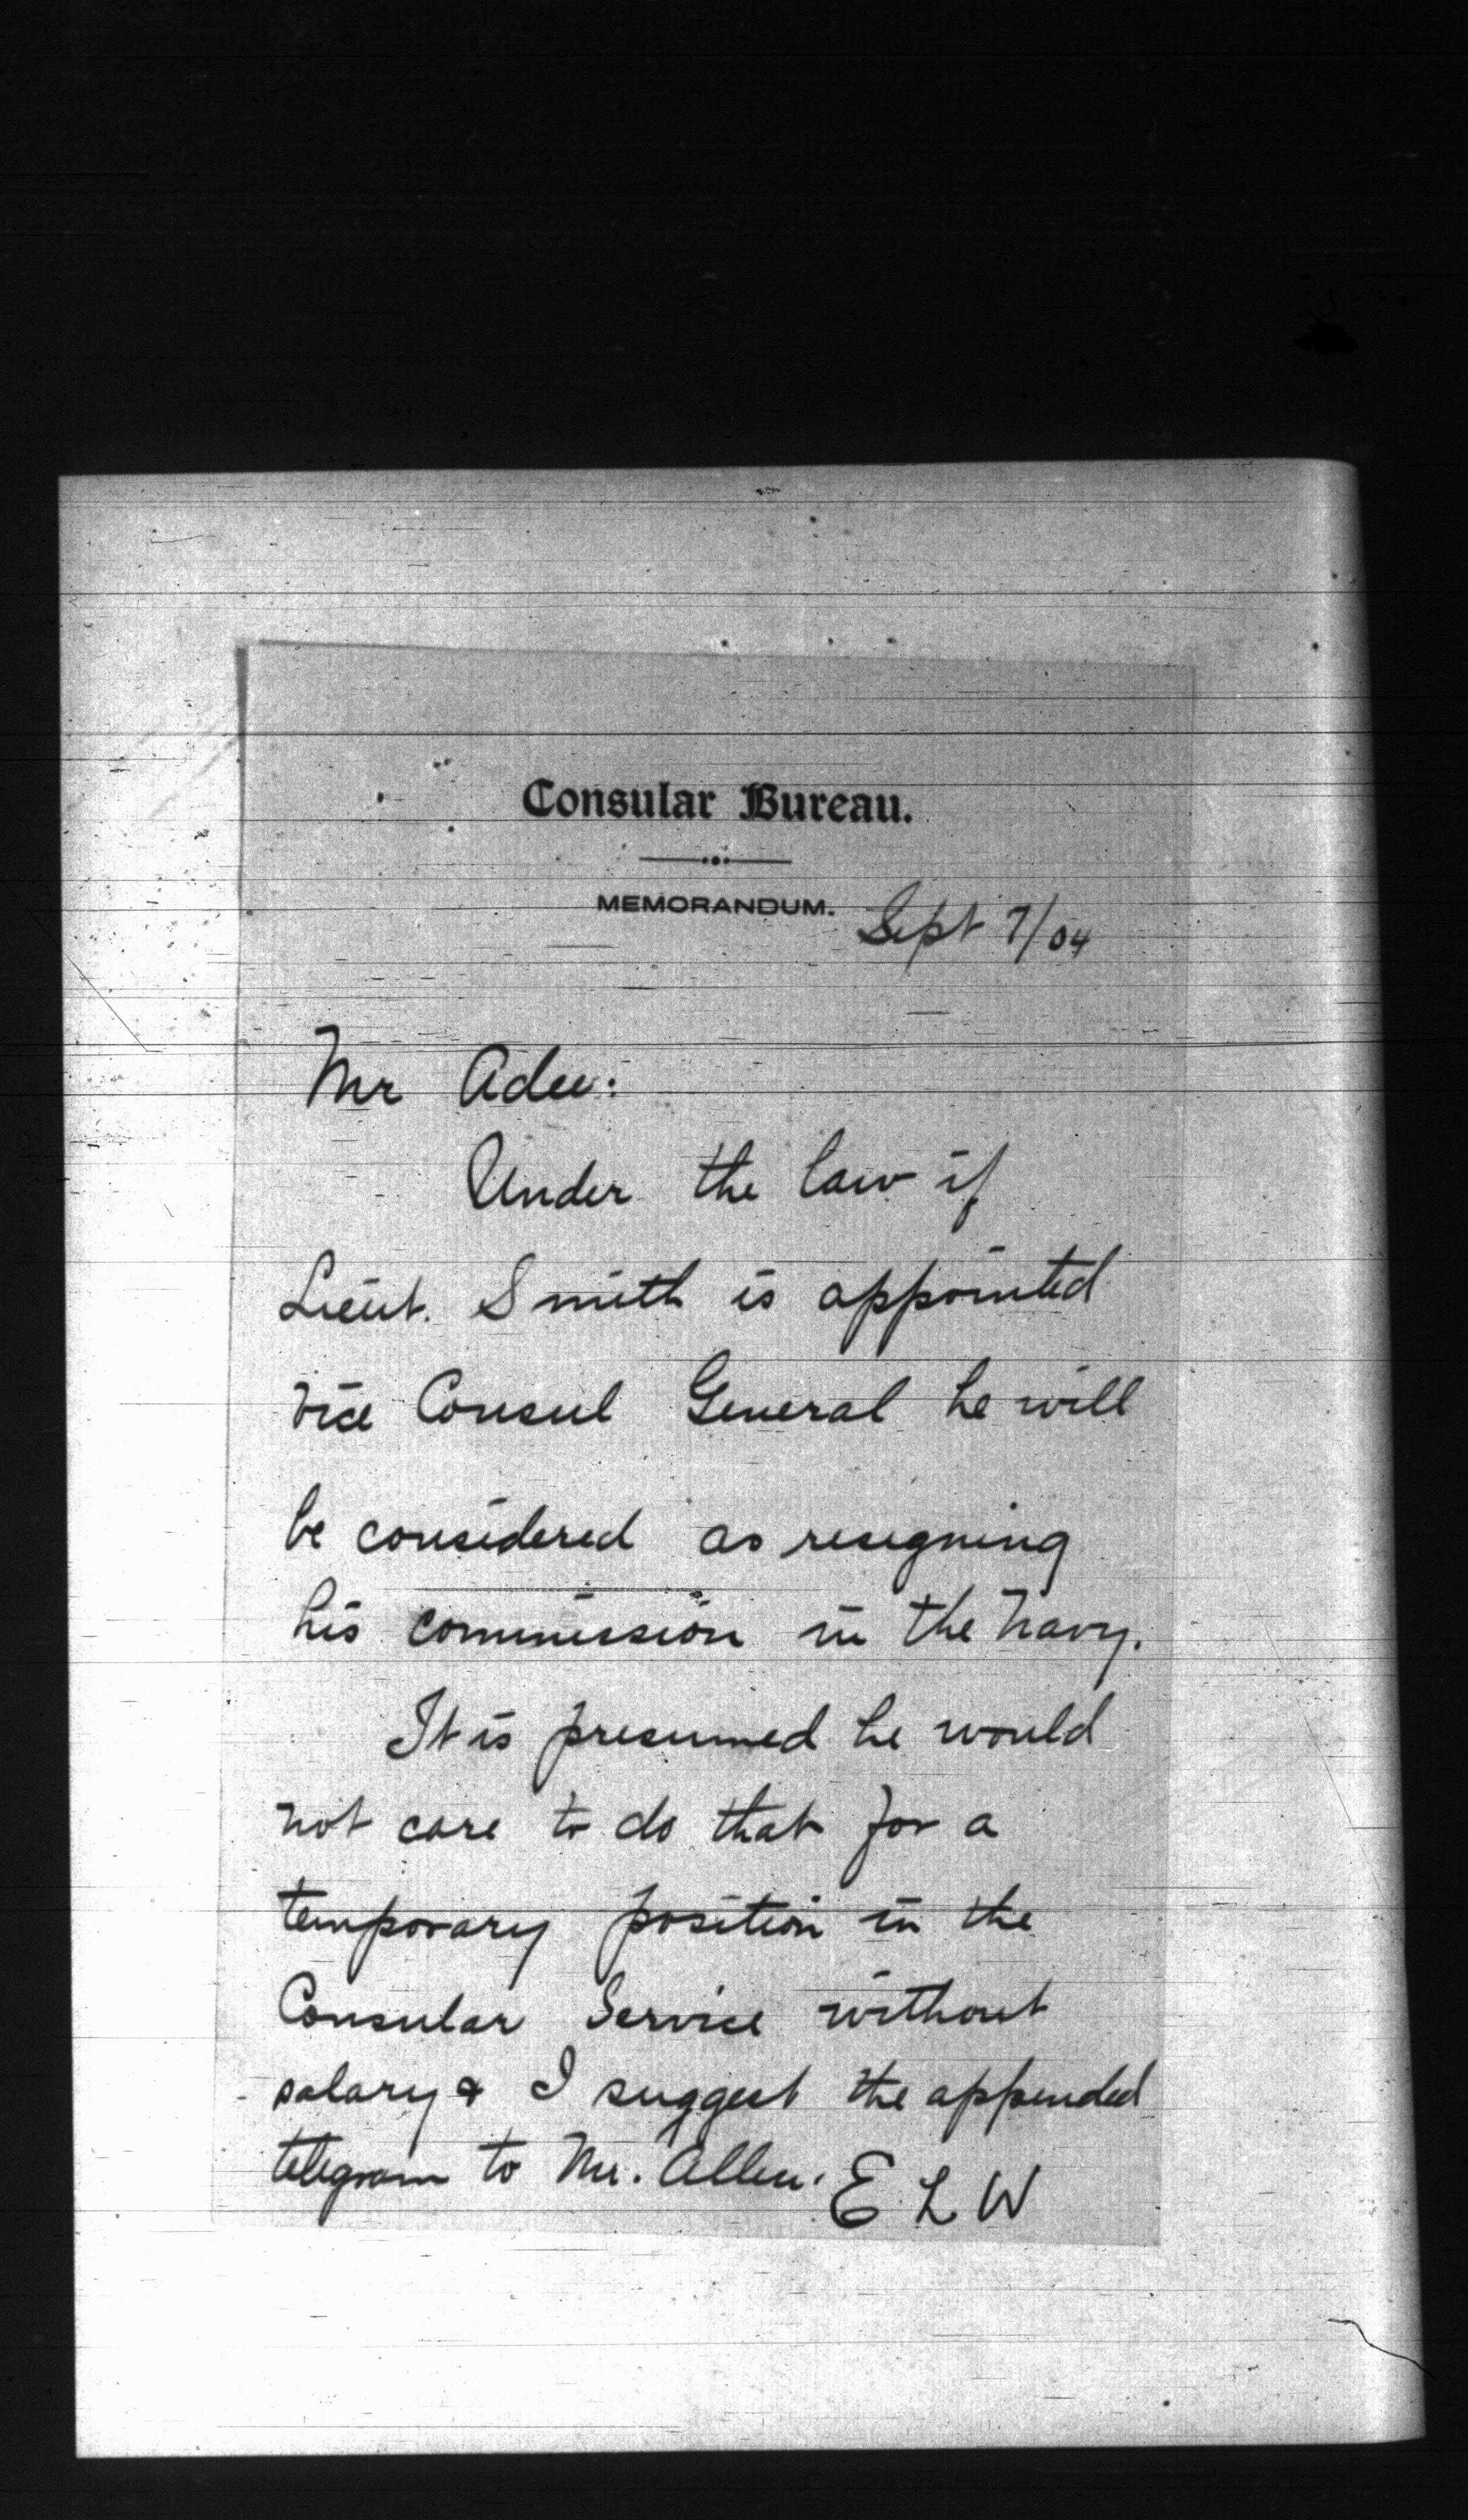 Consular Bureau.
MEMORANDUM.
Sept 7/04
Mr Adee:
Under the law if
Lieut. Smith is appointed
Vice Consul General he will
be considered as resigning
his commission in the Navy.
It is presumed he would
not care to do that for a
temporary position in the
Consular Service without
salary & I suggest the appended
telegram to Mr. Allen.
E L W